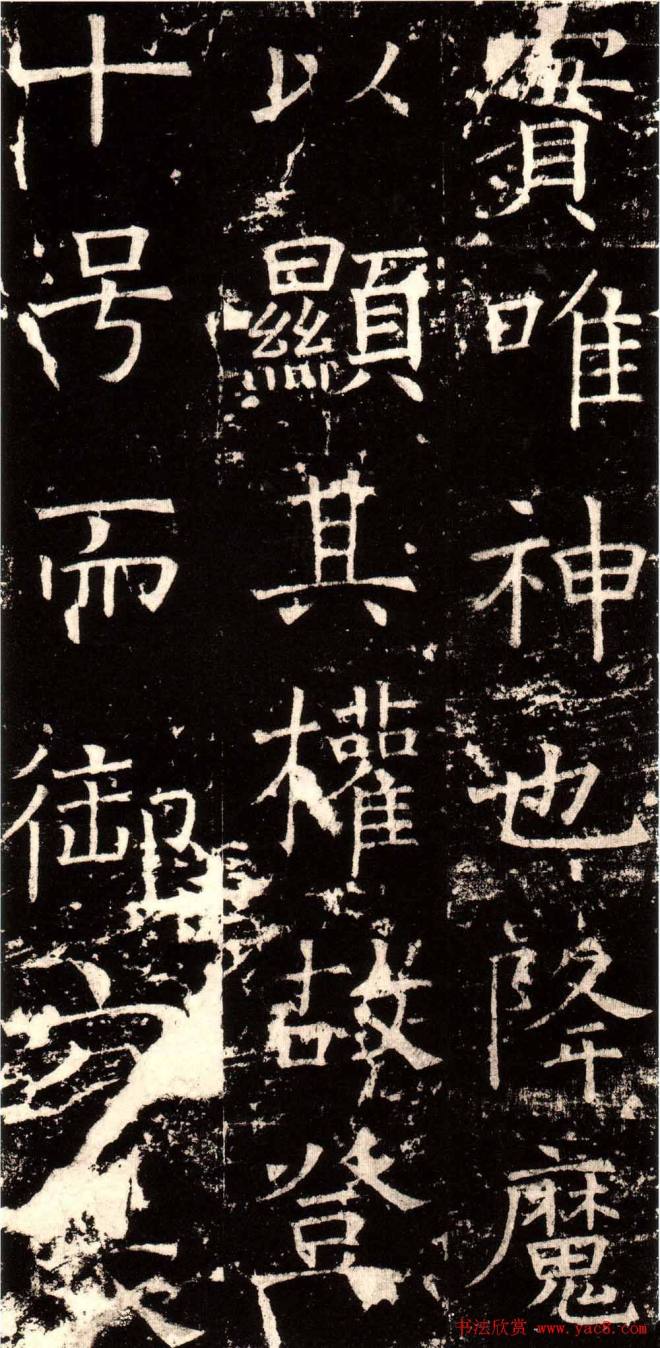 賓唯神也降魔
以顯其權故登
十号而御方
書法欣赏 www.yac8.com